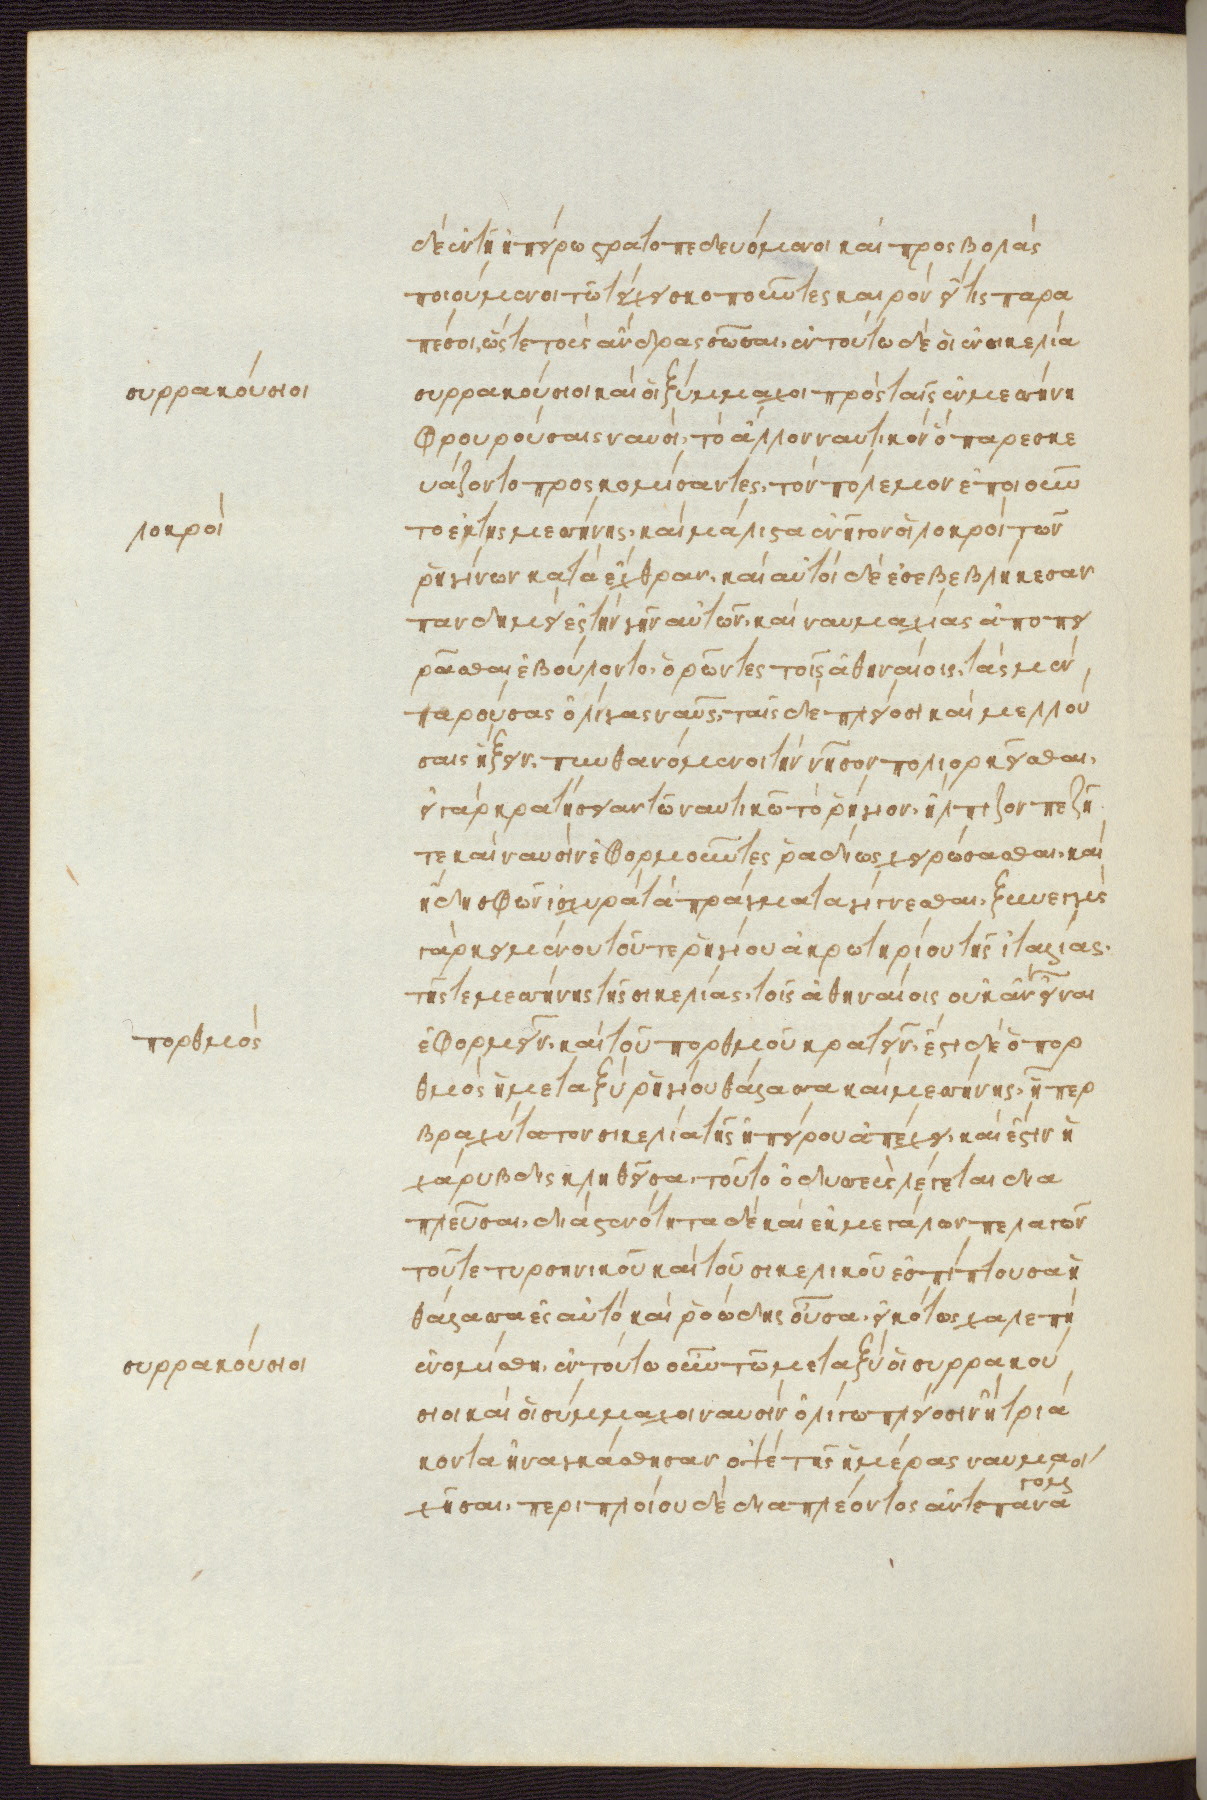 δὲ ἐν τῇ ἠπείρω στρατοπεδευόμενοι καὶ προσβολὰς
ποιούμενοι τῶ τείχει σκοποῦντες καιρὸν εἴ τις παρα
πέσοι, ὥστε τοὺς ἄνδρας σῶσαι. ἐν τούτω δὲ οἱ ἐν σικελία
συρρακούσιοι
συρρακούσιοι καὶ οἱ ξύμμαχοι πρὸς ταῖς ἐν μεσσήνη
φρουρούσαις ναυσὶ, τὸ ἄλλον ναυτικὸν ὃ παρεσκε
υάζοντο προσκομίσαντες, τὸν πόλεμον ἐποιοῦν
λοκροὶ
το ἐκ τῆς μεσσήνης, καὶ μάλιστα ἐνῆγον οἱ λοκροὶ τῶν
ῥηγίνων κατὰ ἔχθραν. καὶ αὐτοὶ δὲ ἐσεβεβλήκεσαν
πανδημεὶ ἐς τὴν γῆν αὐτῶν. καὶ ναυμαχίας ἀποπει
ρᾶσθαι ἐβούλοντο, ὁρῶντες τοῖς ἀθηναίοις, τὰς μὲν
παρούσας ὀλίγας ναῦς, ταῖς δὲ πλείοσι καὶ μελλού
σαις ἥξειν, πυνθανόμενοι τὴν νῆσον πολιορκεῖσθαι.
εἰ γὰρ κρατήσειαν τῶ ναυτικῶ τὸ ῥήγιον, ἤλπιζον πεζῆ
τε καὶ ναυσὶν ἐφορμοῦντες ῥαδίως χειρώσασθαι, καὶ
ἤδη σφῶν ἰσχυρὰ τὰ πράγματα γίγνεσθαι. ξυνεγγὺς
γὰρ κειμένου τοῦ τε ῥηγίου ἀκρωτηρίου τῆς ἰταλίας.
τῆς τε μεσσήνης τῆς σικελίας, τοῖς ἀθηναίοις οὐκ ἂν εἶναι
πορθμὸς
ἐφορμεῖν. καὶ τοῦ πορθμοῦ κρατεῖν. ἔστι δὲ ὁ πορ
θμὸς ἡ μεταξὺ ῥηγίου θάλασσα καὶ μεσσήνης, ᾗπερ
βραχύτατον σικελία τῆς ἠπείρου ἀπέχει. καὶ ἔστιν ἡ
χάρυβδις κληθεῖσα, τοῦτο ὁδυσσεὺς λέγεται δια
πλεῦσαι. διὰ στενότητα δὲ καὶ ἐκ μεγάλων πελαγῶν
τοῦ τε τυρσηνικοῦ καὶ τοῦ σικελικοῦ ἐσπίπτουσα ἡ
θάλασσα ἐς αὐτὸ καὶ ῥοώδης οὖσα, εἰκότως χαλεπὴ
συρρακούσιοι
ἐνομίσθη. ἐν τούτω οὖν τῶ μεταξὺ οἱ συρρακού
σιοι καὶ οἱ σύμμαχοι ναυσὶν ὀλίγω πλείοσιν ἢ τριά
κοντα ἠναγκάσθησαν ὀψὲ τῆς ἡμέρας ναυμα
χῆσαι. περὶ πλοίου δὲ διαπλέοντος